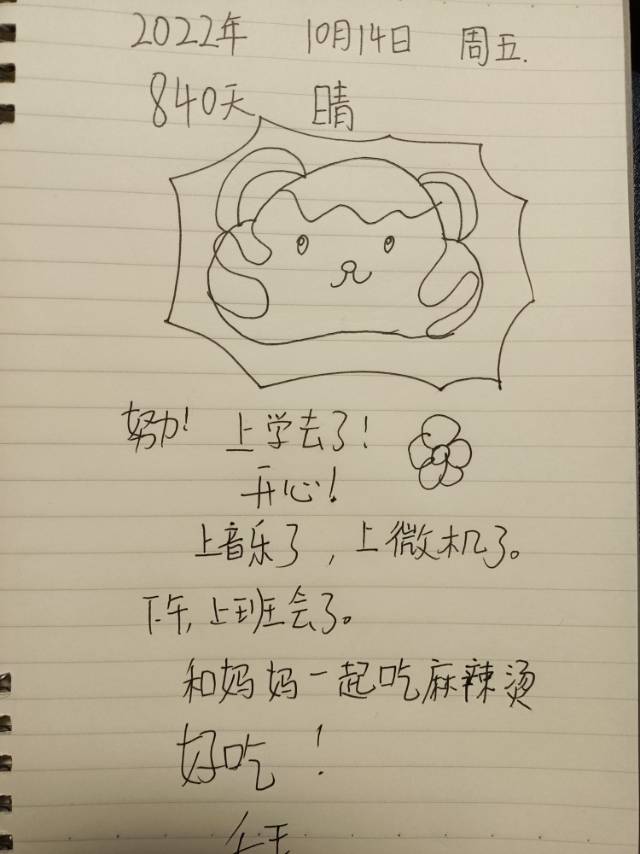 2022年 10月14日 周五.
840天 晴
努力! 上学去了!
开心!
上音乐了,上微机了。
下午,上班会了。
和妈妈一起吃麻辣烫
好吃!